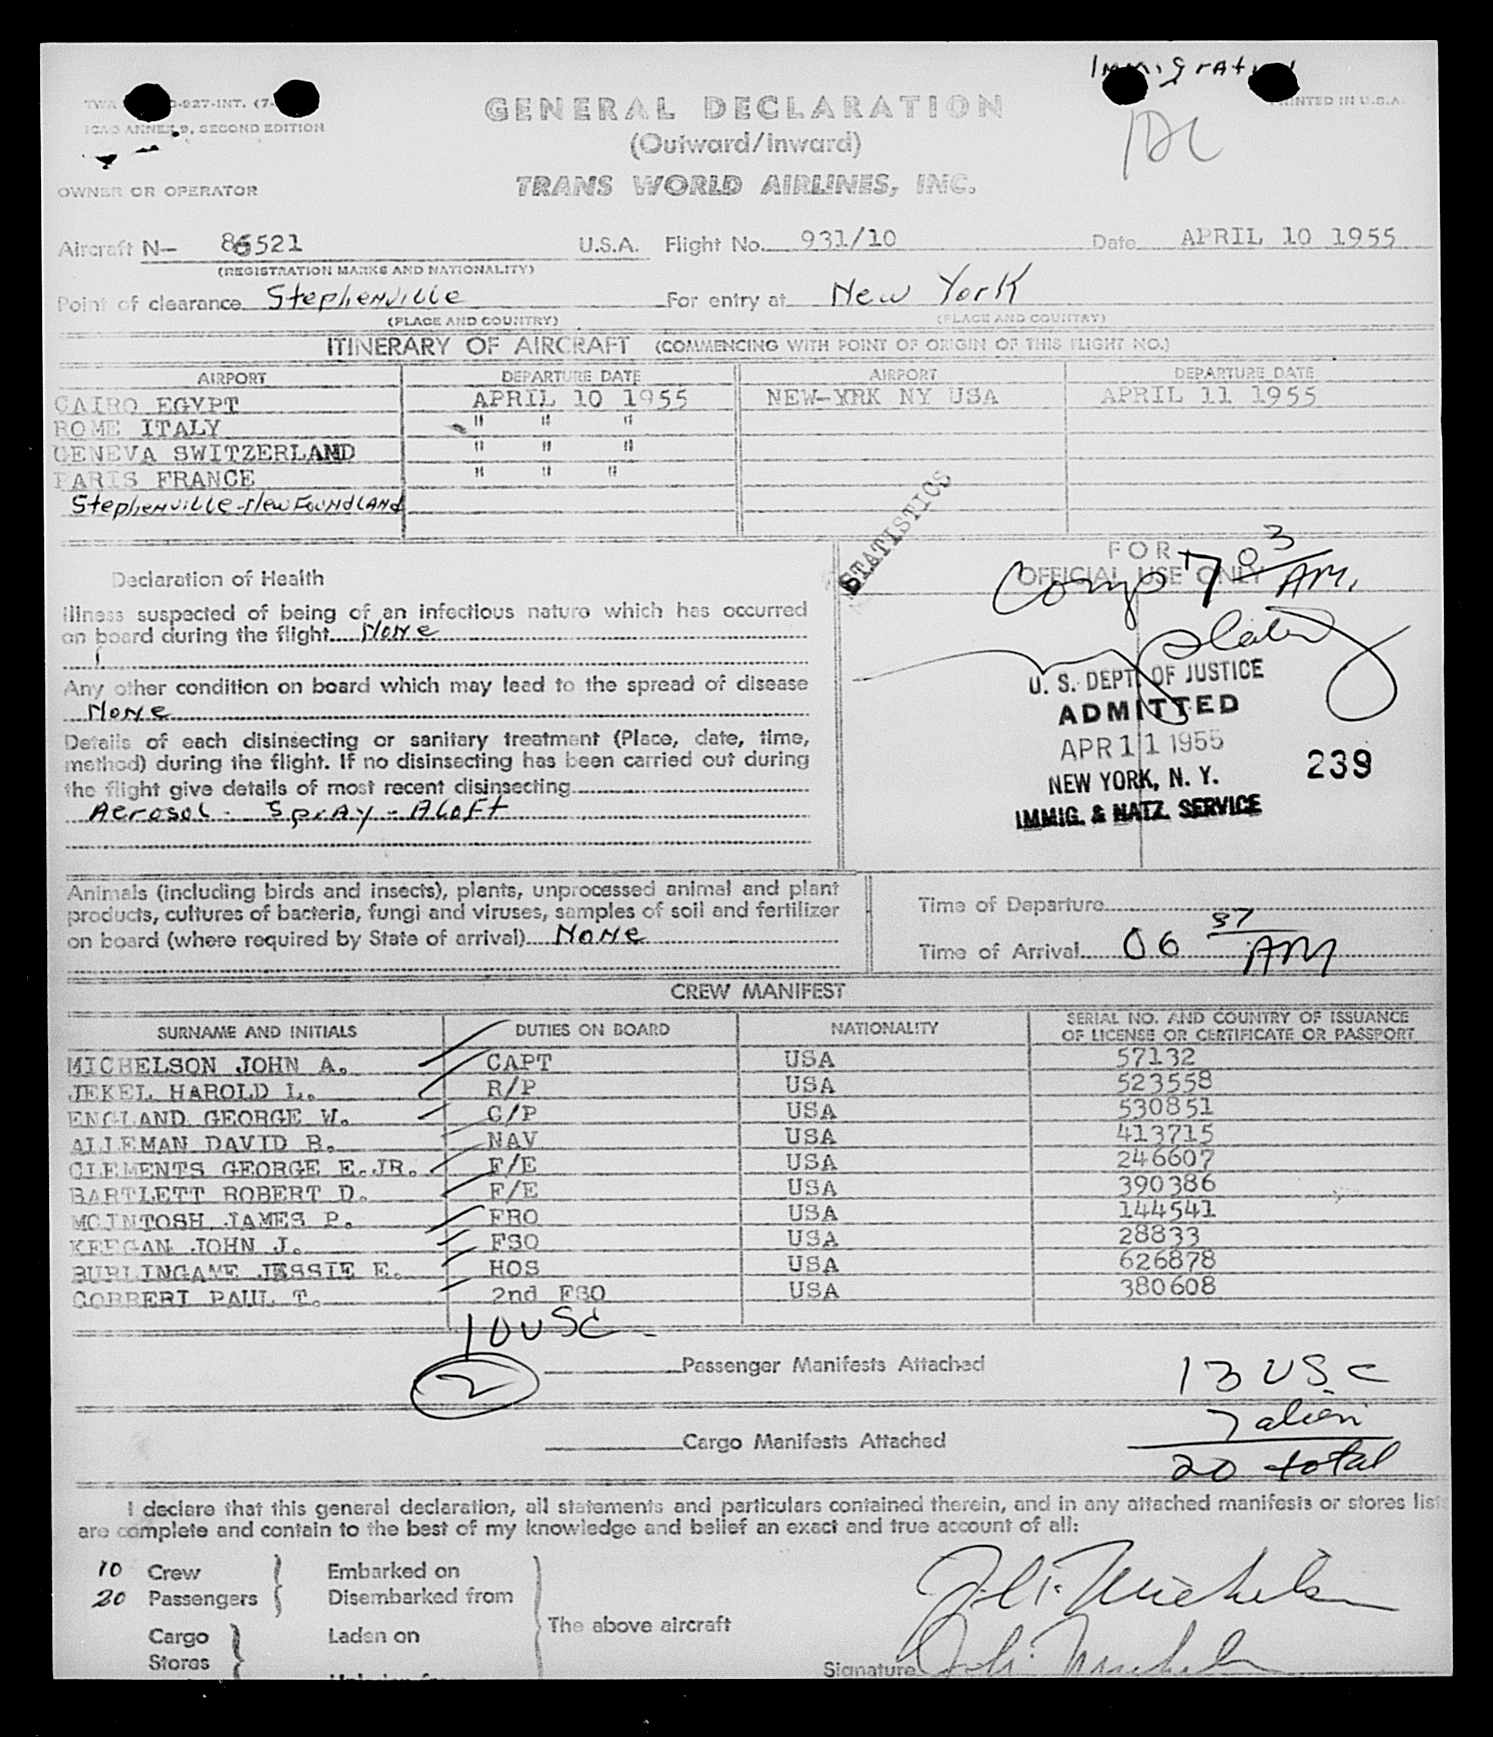 Immigration
TWA
927-INT. (7-
PRINTED IN U.S.A.
ICAO ANNEX 9, SECOND EDITION
GENERAL DECLARATION
(Outward/Inward)
OWNER OR OPERATOR
TRANS WORLD AIRLINES, INC.
Aircraft N- 86521 U.S.A. Flight No. 931/10 Date APRIL 10 1955
(REGISTRATION MARKS AND NATIONALITY)
Point of clearance Stephenville For entry at New York
(PLACE AND COUNTRY) (PLACE AND COUNTRY)
ITINERARY OF AIRCRAFT (COMMENCING WITH POINT OF ORIGIN OF THIS FLIGHT NO.)
AIRPORT DEPARTURE DATE AIRPORT DEPARTURE DATE
CAIRO EGYPT APRIL 10 1955 NEW-YRK NY USA APRIL 11 1955
ROME ITALY " " "
GENEVA SWITZERLAND " " "
PARIS FRANCE " " "
Stephenville-NewFoundland
STATISTICS
FOR
OFFICIAL USE ONLY
Comp 7 03 AM.
Declaration of Health
Illness suspected of being of an infectious nature which has occurred
on board during the flight None
Any other condition on board which may lead to the spread of disease
None
Details of each disinsecting or sanitary treatment (Place, date, time,
method) during the flight. If no disinsecting has been carried out during
the flight give details of most recent disinsecting
Aerosol - Spray - Aloft
U. S. DEPT. OF JUSTICE
ADMITTED
APR 11 1955
NEW YORK, N. Y.
IMMIG. & NATZ. SERVICE
239
Animals (including birds and insects), plants, unprocessed animal and plant
products, cultures of bacteria, fungi and viruses, samples of soil and fertilizer
on board (where required by State of arrival) None
Time of Departure
Time of Arrival 06 37 AM
CREW MANIFEST
SURNAME AND INITIALS DUTIES ON BOARD NATIONALITY SERIAL NO. AND COUNTRY OF ISSUANCE
OF LICENSE OR CERTIFICATE OR PASSPORT
MICHELSON JOHN A. CAPT USA 57132
JEKEL HAROLD L. R/P USA 523558
ENGLAND GEORGE W. C/P USA 530851
ALLEMAN DAVID B. NAV USA 413715
CLEMENTS GEORGE E.JR. F/E USA 246607
BARTLETT ROBERT D. F/E USA 390386
MCINTOSH JAMES P. FRO USA 144541
KEEGAN JOHN J. FSO USA 28833
BURLINGAME JESSIE E. HOS USA 626878
CORRERI PAUL T. 2nd FSO USA 380608
10 USC
2 Passenger Manifests Attached
13 USC
7 alien
Cargo Manifests Attached
20 total
I declare that this general declaration, all statements and particulars contained therein, and in any attached manifests or stores lists
are complete and contain to the best of my knowledge and belief an exact and true account of all:
10 Crew Embarked on
20 Passengers Disembarked from
The above aircraft
Cargo Laden on
Stores
Signature